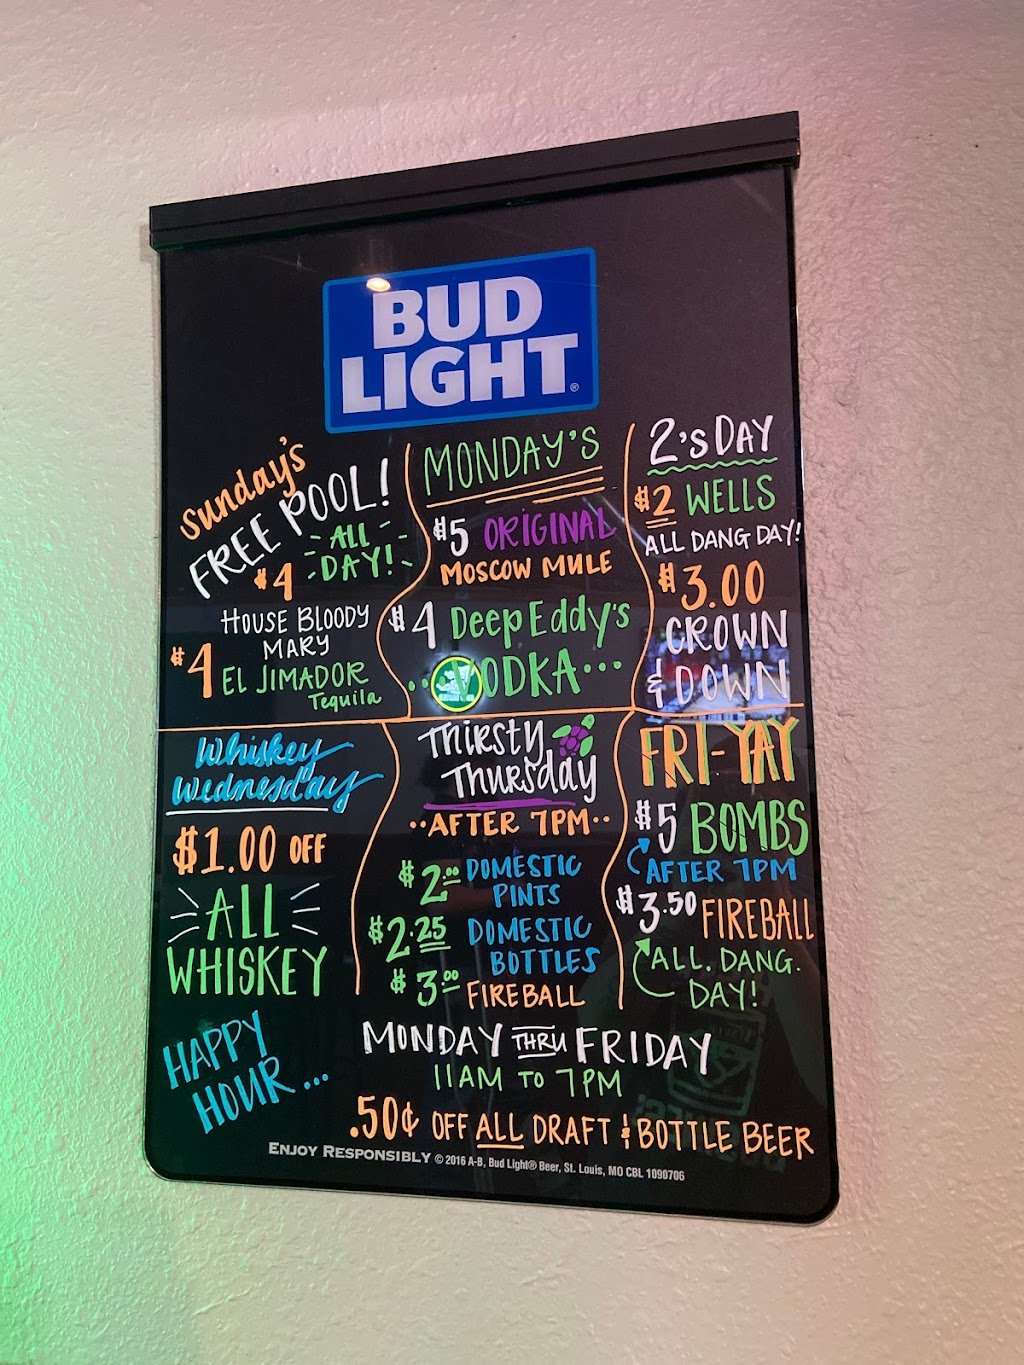 BUD
LIGHT®
Sunday's
FREE POOL!
ALL
DAY!
$4
HOUSE BLOODY
MARY
$4 EL JIMADOR
Tequila
MONDAY'S
$5 ORIGINAL
MOSCOW MULE
$4 DeepEddy's
··VODKA···
2'sDAY
$2 WELLS
ALL DANG DAY!
$3.00
CROWN
& DOWN
Whiskey
Wednesday
$1.00 OFF
ALL
WHISKEY
Thirsty
Thursday
··AFTER 7PM··
$2.00 DOMESTIC
PINTS
$2.25 DOMESTIC
BOTTLES
$3.00 FIREBALL
FRI-YAY
$5 BOMBS
AFTER 7PM
$3.50 FIREBALL
ALL. DANG.
DAY!
HAPPY
HOUR...
MONDAY THRU FRIDAY
11AM TO 7PM
.50¢ OFF ALL DRAFT & BOTTLE BEER
ENJOY RESPONSIBLY © 2016 A-B, Bud Light® Beer, St. Louis, MO CBL 1090706